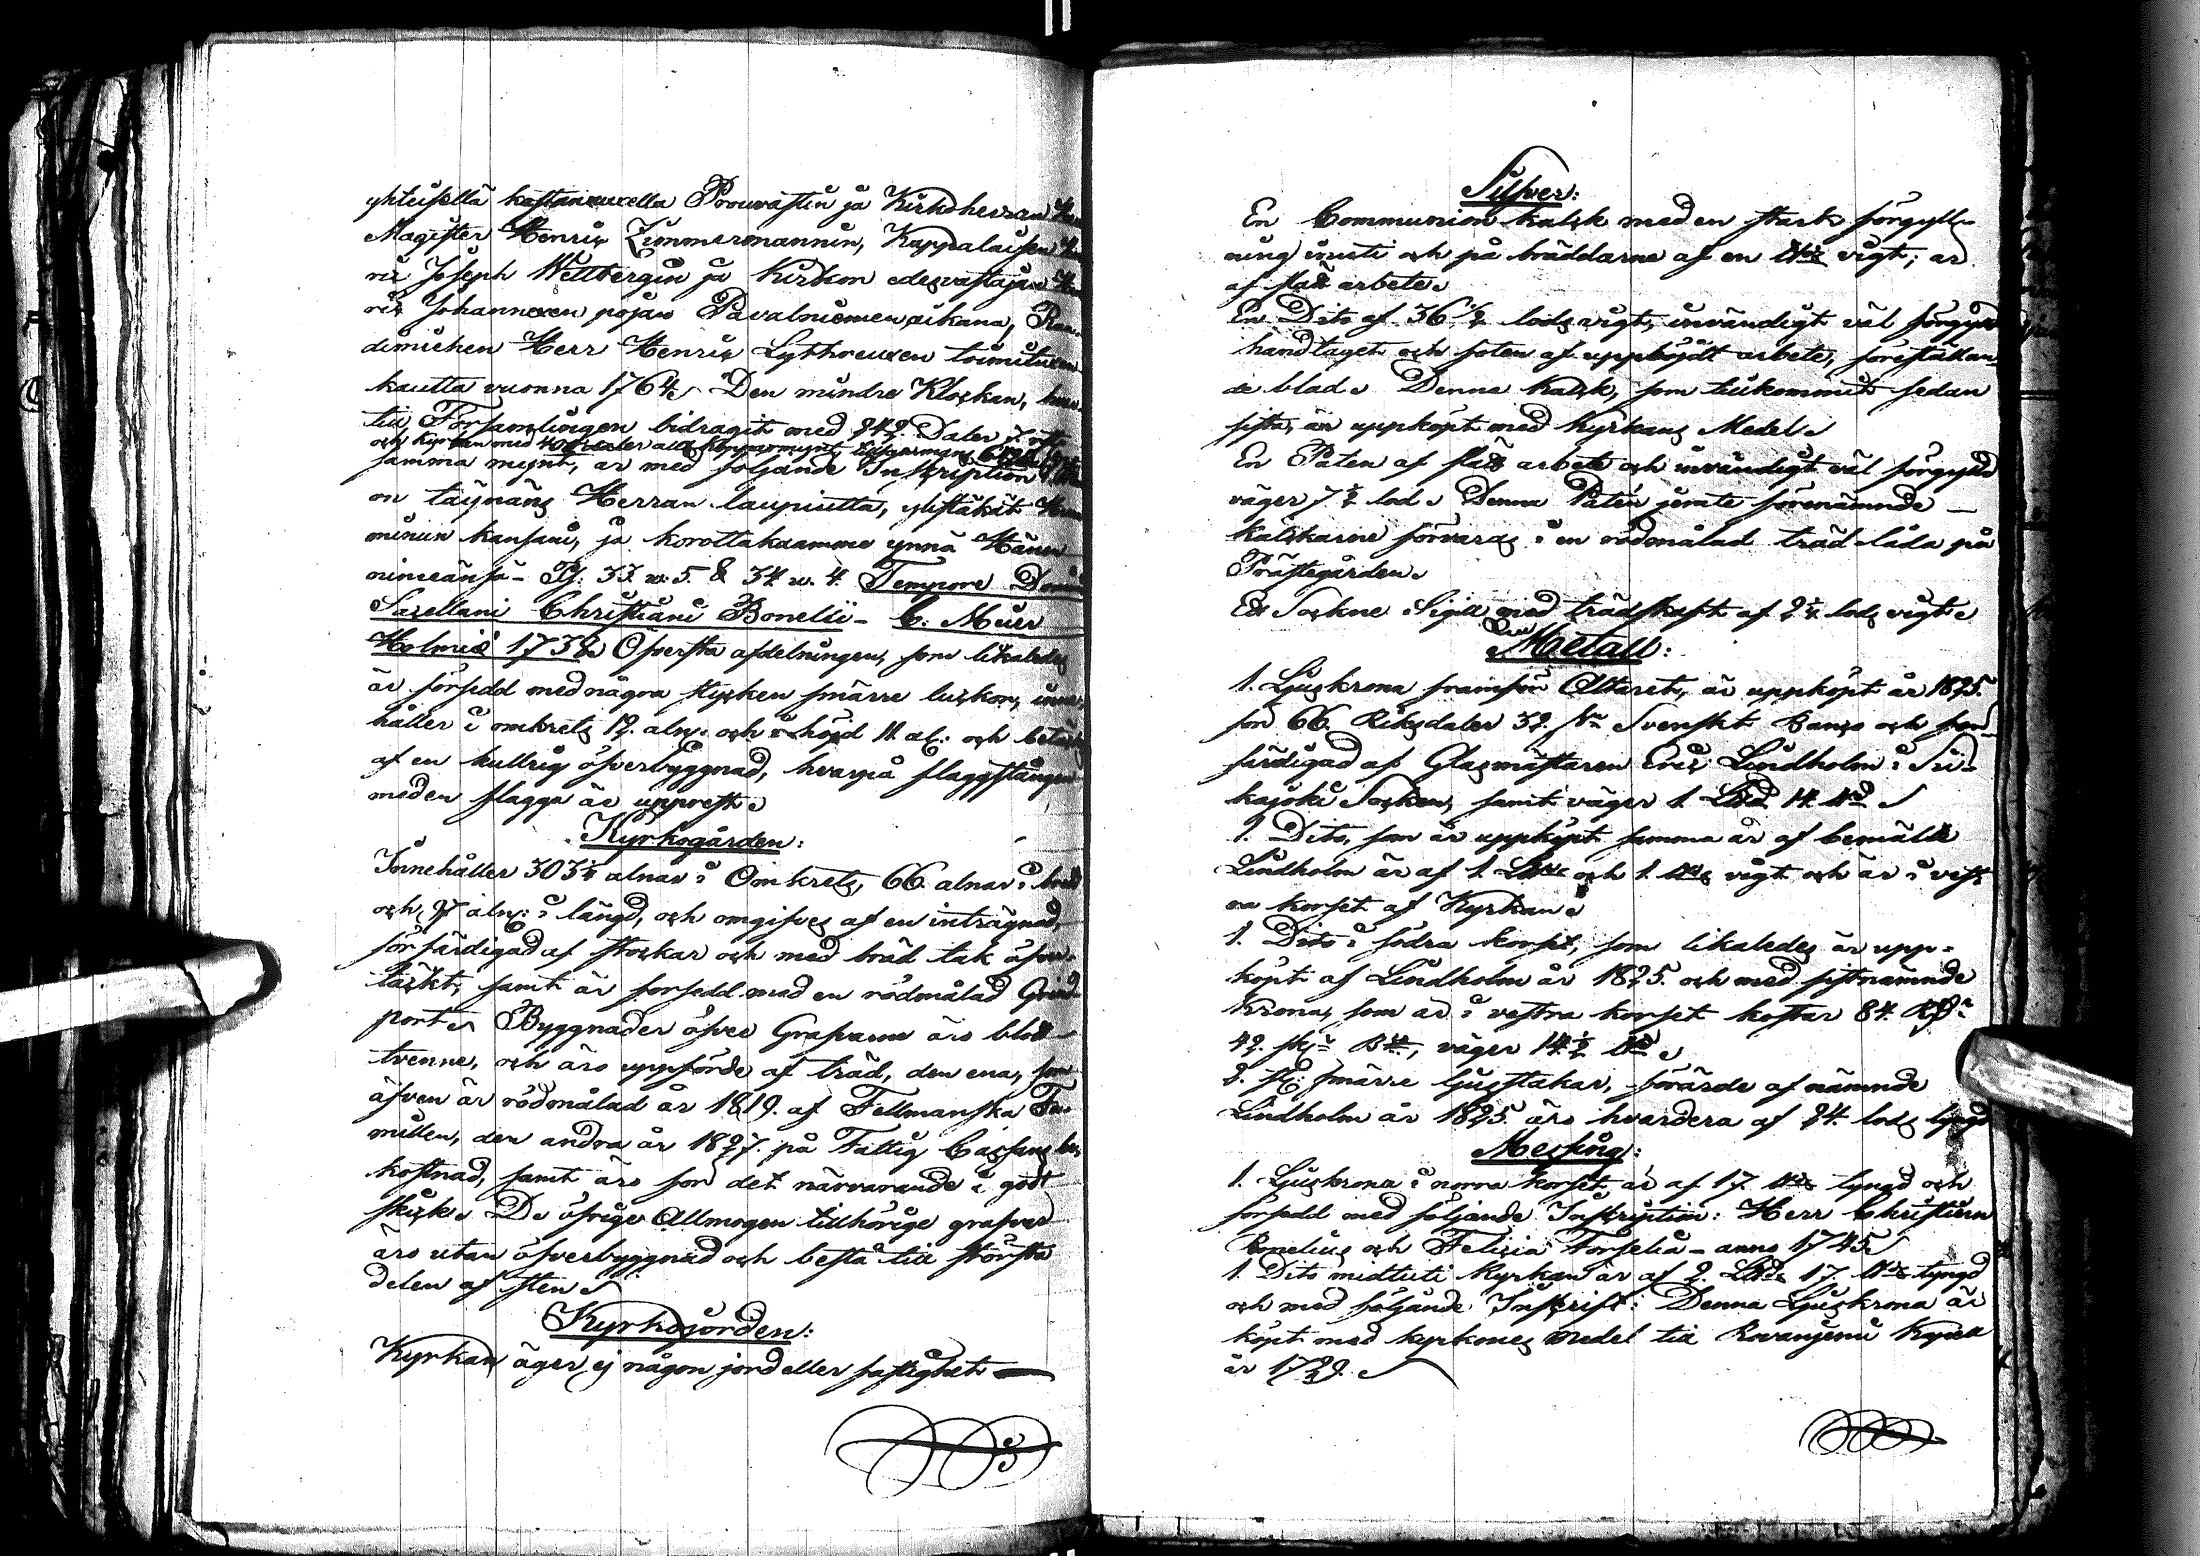 yhteisellä kostannuxella Prouwastin ja Kirkoherran
Magister Henric Zimmermannin, Kappalaisen
ric Joseph Wettbergin ja Kirkon edesvastajan
ric Johannexen pojan Pavalniemen aikana,
dimichen Herr Henric Lythreuxen toimituxen
kautta vuonna 1764. Den mindre Klockan,
till Församlingen bidragit med 242. Daler
och Kyrkan med
samma mynt, är med följande Inskription
on täynäns Herran laupiutta, ylistäkät
minun kansani, ja korottakaamme ynnä Hänen
nimeänsä - Ps: 33. w. 5. & 34. w. 4. Tempore Domini
Sacellani Christiani Bonelii - C. Meier
Holmiæ 1738. Öfversta afdelningen, som likaledes
är försedd med några stycken smärre luckor, inne-
håller i omkrets 12. aln: och i höjd 11. al: och betäckes
af en kullrig öfverbyggnad, hvarpå flaggstången
med en flagga är upprest.
Kyrkogården:
Innehåller 303¼ alnar i Omkrets, 66 alnar i bredd
och aln: i längd, och omgifves af en inträgnad,
förfärdigad af stockar och med bräd tak öfver-
täckt, samt är försedd med en rödmålad Grind
port. Byggnader öfver Grafvarne äro blott
tvenne, och äro uppförde af träd, den ena, som
äfven är rödmålad år 1819. af Fellmanska Fa-
millen, den andra år 1827. på Fattig Cassans be-
kostnad, samt äro för det närvarande i godt
skick. De öfrige Allmogen tillhörige grafvar
äro utan öfverbyggnad och bestå till största
delen af sten.
Kyrkojorden:
Kyrkan äger ej någon jord eller fastighet
Silfver:
En Communion kalk med en stark förgyll-
ning inuti och på bräddarne af en vigt; är
af slätt arbete.
En Dito af 36½ lods vigt, invändigt väl förgyld
handtaget och foten af upphöjdt arbete, föreställan-
de blad. Denna kalk, som tillkommit sedan
sista, är uppköpt med Kyrkans Medel.
En Paten af slätt arbete och invändigt väl förgyld
väger 7½ lod. Denna Patén jemte förenämnde
kalkarne förvaras i en rödmålad träd låda på
Prästegården.
Ett Sockne Sigill med trädskaft af 2¼ lods vigt.
Metall:
1. Ljuskrona framför Altaret, är uppköpt år 1825.
för 66. Riksdaler 32. Svenskt Banco och för-
färdigad af Glasmästaren Eric Lindholm i Sii-
kajoki Socken, samt väger 1. 14.
1. Dito, som är uppköpt samma år af bemälte
Lindholm är af 1. och 1. vigt och är i vest-
ra korset af Kyrkan.
1. Dito i södra korset, som likaledes är upp-
köpt af Lindholm år 1825. och med sistnämnde
Krona, som är i vestra korset kostar 84.
42. väger 14½
2. st: smärre ljusstakar, förärde af nämnde
Lindholm år 1825 äro hvardera af 24. lods tyngd
Messing:
1. Ljuskrona i norra korset är af 17. tyngd och
försedd med följande Inscription: Herr Christiern
Bonelius och Felicia Forselia - anno 1745
1. Dito midtuti Kyrkan är af 2. 17. tyngd
och med följande Inskrift: Denna Ljuskrona är
köpt med kyrkones medel till Rovaniemi Kyrka
år 1729.